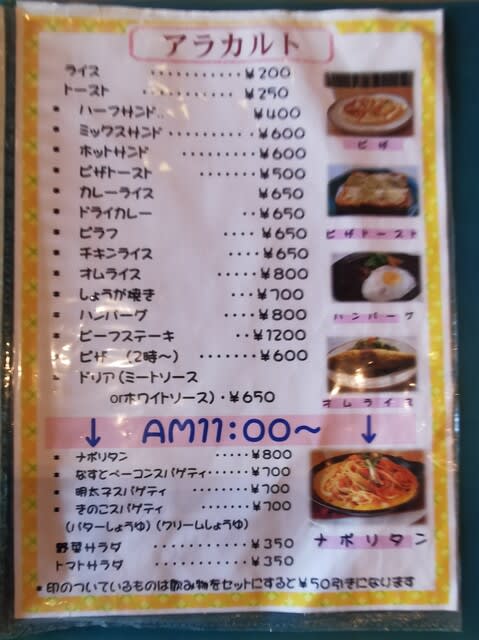 アラカルト
ライス ・・・・・・・・・・・ ¥200
トースト ・・・・・・・・・・・ ¥250
* ハーフサンド.. ¥400
* ミックスサンド ・・・・・・・・・・ ¥600
* ホットサンド ・・・・・・・・ ¥600
* ピザトースト ・・・・・・・ ¥500
* カレーライス ¥650
* ドライカレー ・・¥650
* ピラフ ・・・・ ¥650
* チキンライス ・・・・ ¥650
* オムライス ・・・・・・¥800
* しょうが焼き ・・・¥700
* ハンバーグ ・・・・ ¥800
* ビーフステーキ ・・¥1200
* ピザ (2時~) ・・・・・・・¥600
* ドリア(ミートソース
orホワイトソース)・¥650
ピザ
ピザトースト
ハンバーグ
オムライス
↓ AM11:00~ ↓
* ナポリタン ・・・・・¥800
* なすとベーコンスパゲティ・・・・・¥700
* 明太子スパゲティ ・・・・¥700
* きのこスパゲティ ・・・・¥700
(バターしょうゆ)(クリームしょうゆ)
野菜サラダ ・・・・・・・・・¥350
トマトサラダ ・・・・・・・・・¥350
ナポリタン
*印のついているものは飲み物をセットにすると¥50引きになります